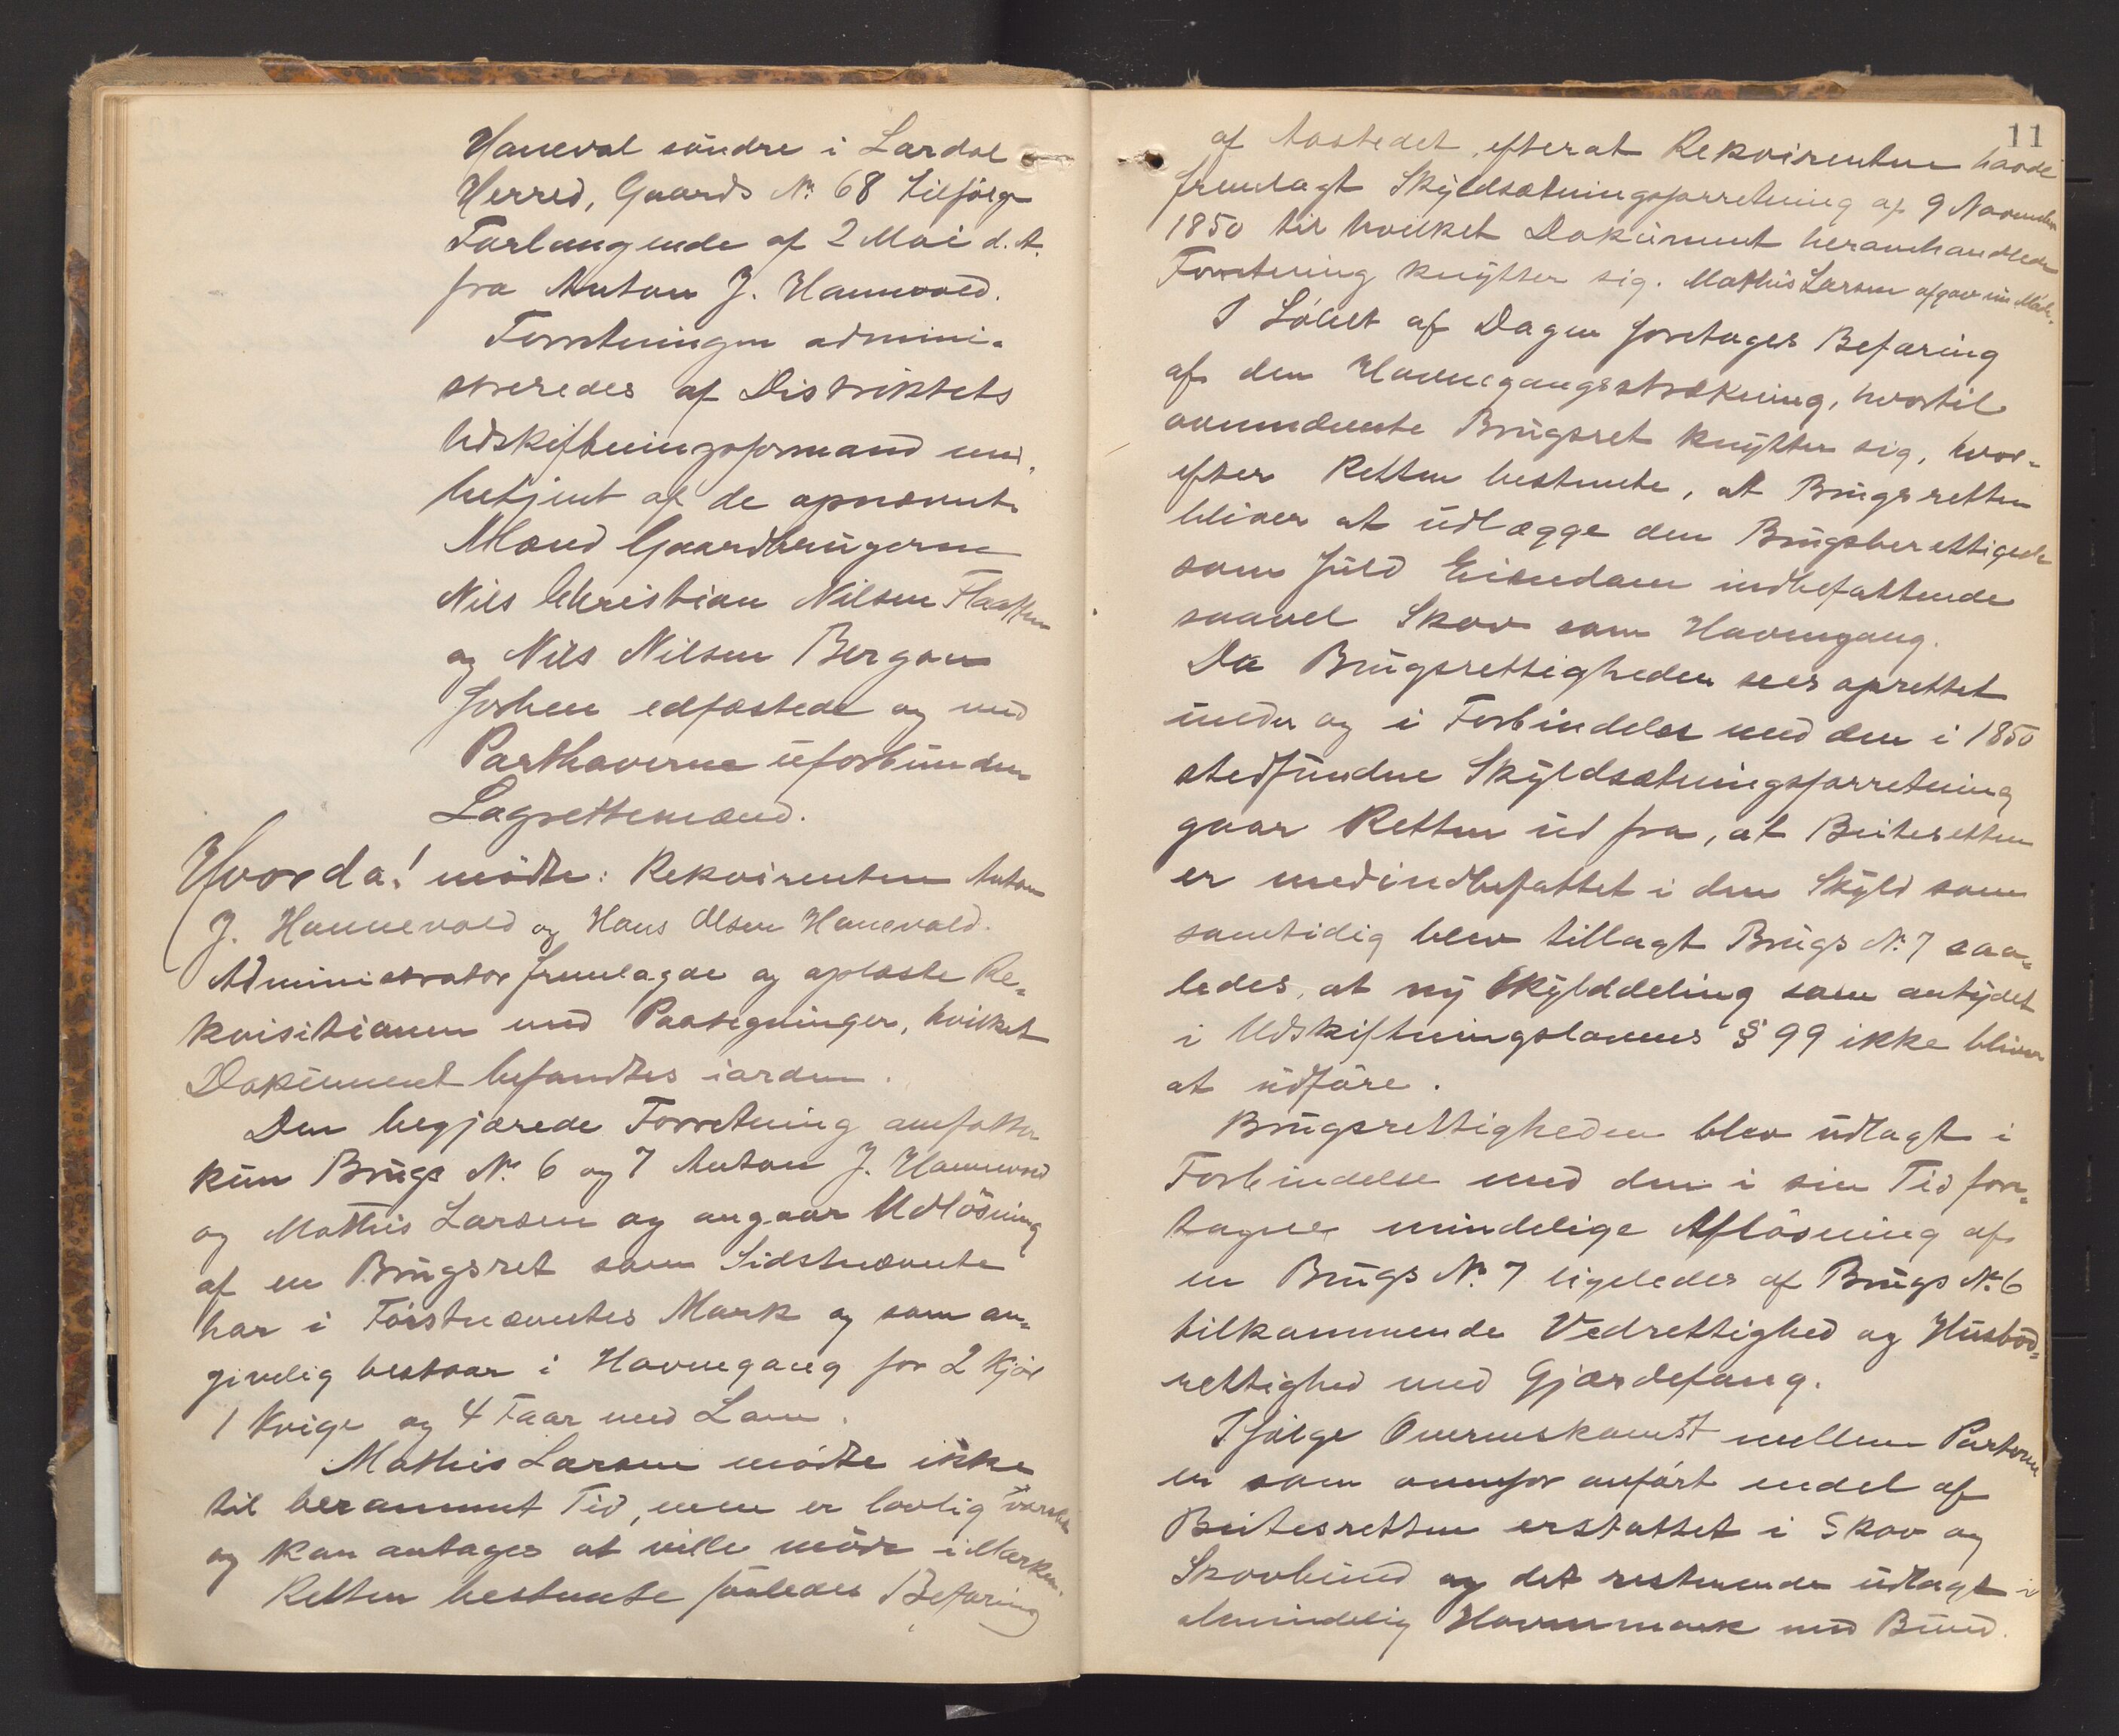 Haneval söndre i Lardal
Herred, Gaards No 68 tilfølge
Forlangende af 2 Mai d. A.
fra Anton J. Hannevold.
Forretningen admini-
streredes af Distriktets
Udskiftningsformand med
betjent af de opnævnte
Mænd Gaardbrugerne
Nils Christian Nilsen Flaatten
og Nils Nilsen Bergan
forhen edfæstede og med
Parthaverne uforbundne
Lagrettemænd.
Hvorda! mödte: Rekvirenten Anton
J. Hannevold og Hans Olsen Hanevold.
Administrator fremlagde og oplæste Re-
kvisitionen med Paategninger, hvilket
Dokument befandtes iorden.
Den begjærede Forretning omfatter
kun Brugs No 6 og 7 Anton J. Hannevold
og Mathis Larsen og angaar Udlösning
af en Brugsret som Sidstnævnte
har i Förstnævntes Mark og som an-
givelig bestaar i Havnegang for 2 Kjör
1 Kvige og 4 Faar med Lam.
Mathis Larsen mödte ikke
til berammet Tid, men er lovlig varslet
og kan antages at ville möde i Marken.
Retten bestemte saaledes Befaring
11
af Aastedet, efterat Rekvirenten havde
fremlagt Skyldsætningsforretning af 9 November
1850 til hvilket Dokument heromhandlede
Forretning knytter sig. Mathis Larsen afgav nu Möde.
I Löbet af Dagen foretages Befaring
af den Havnegangsstrækning, hvortil
ovennævnte Brugsret knytter sig, hvor-
efter Retten bestemte, at Brugsretten
bliver at udlægge den Brugsberettigede
som fuld Eiendom indbefattende
saavel Skov som Havnegang.
Da Brugsrettigheden sees oprettet
under og i Forbindelse med den i 1850
stedfundne Skyldsætningsforretning
gaar Retten ud fra, at Beiteretten
er medindbefattet i den Skyld som
samtidig blev tillagt Brugs No 7 saa-
ledes, at ny Skylddeling som antydet
i Udskiftningslovens § 99 ikke bliver
at udföre.
Brugsrettigheden blev udlagt i
Forbindelse med den i sin Tid fore-
tagne mindelige Aflösning af
en Brugs No 7 ligeledes af Brugs No 6
tilkommende Vedrettighed og Husbod-
rettighed med Gjærdefang.
Ifölge Overenskomst mellem Parterne
er som ovenfor anfört endel af
Beitesretten erstattet i Skov og
Skovbund og det resterende udlagt i
almindelig Havnemark med Bund.